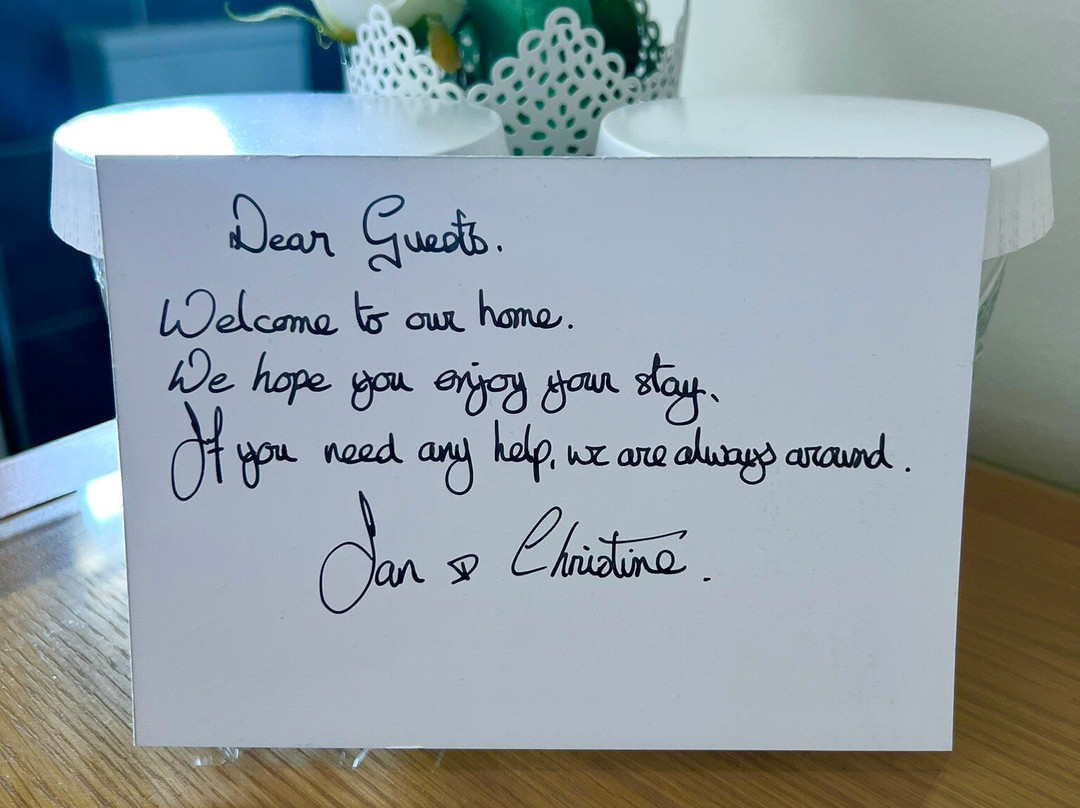 Dear Guests.
Welcome to our home.
We hope you enjoy your stay.
If you need any help, we are always around.
Ian & Christine.